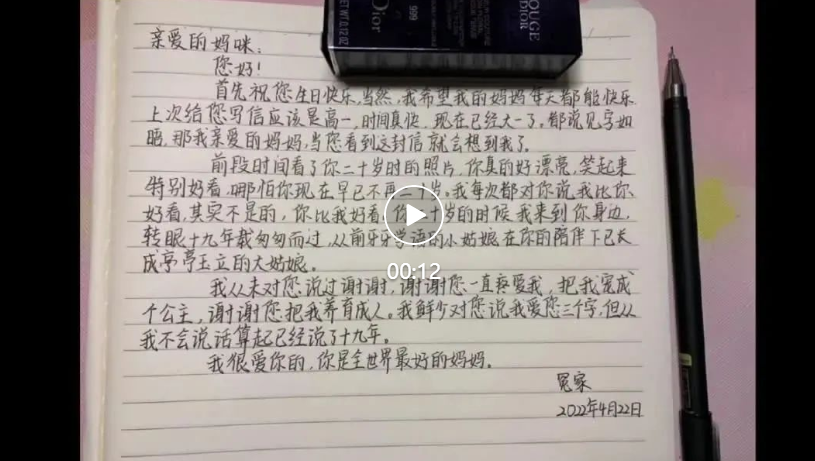 ROUGE
DIOR
999
Dior
NET WT. 0.12 OZ
亲爱的妈咪：
您好！
首先祝您生日快乐，当然，我希望我的妈妈每天都能快乐
上次给您写信应该是高一，时间真快，现在已经大一了。都说见字如
晤，那我亲爱的妈妈，当您看到这封信就会想到我了。
前段时间看了你二十岁时的照片，你真的好漂亮，笑起来
特别好看，哪怕你现在早已不再二十岁。我每次都对你说我比你
好看，其实不是的，你比我好看，你二十岁的时候我来到你身边，
转眼十九年载匆匆而过，从前牙牙学语的小姑娘在你的陪伴下已长
成亭亭玉立的大姑娘。
我从未对您说过谢谢，谢谢您一直疼爱我，把我宠成
个公主，谢谢您把我养育成人。我鲜少对您说我爱您三个字，但从
我不会说话算起已经说了十九年。
我很爱你的，你是全世界最好的妈妈。
冤家
2022年4月22日
00:12